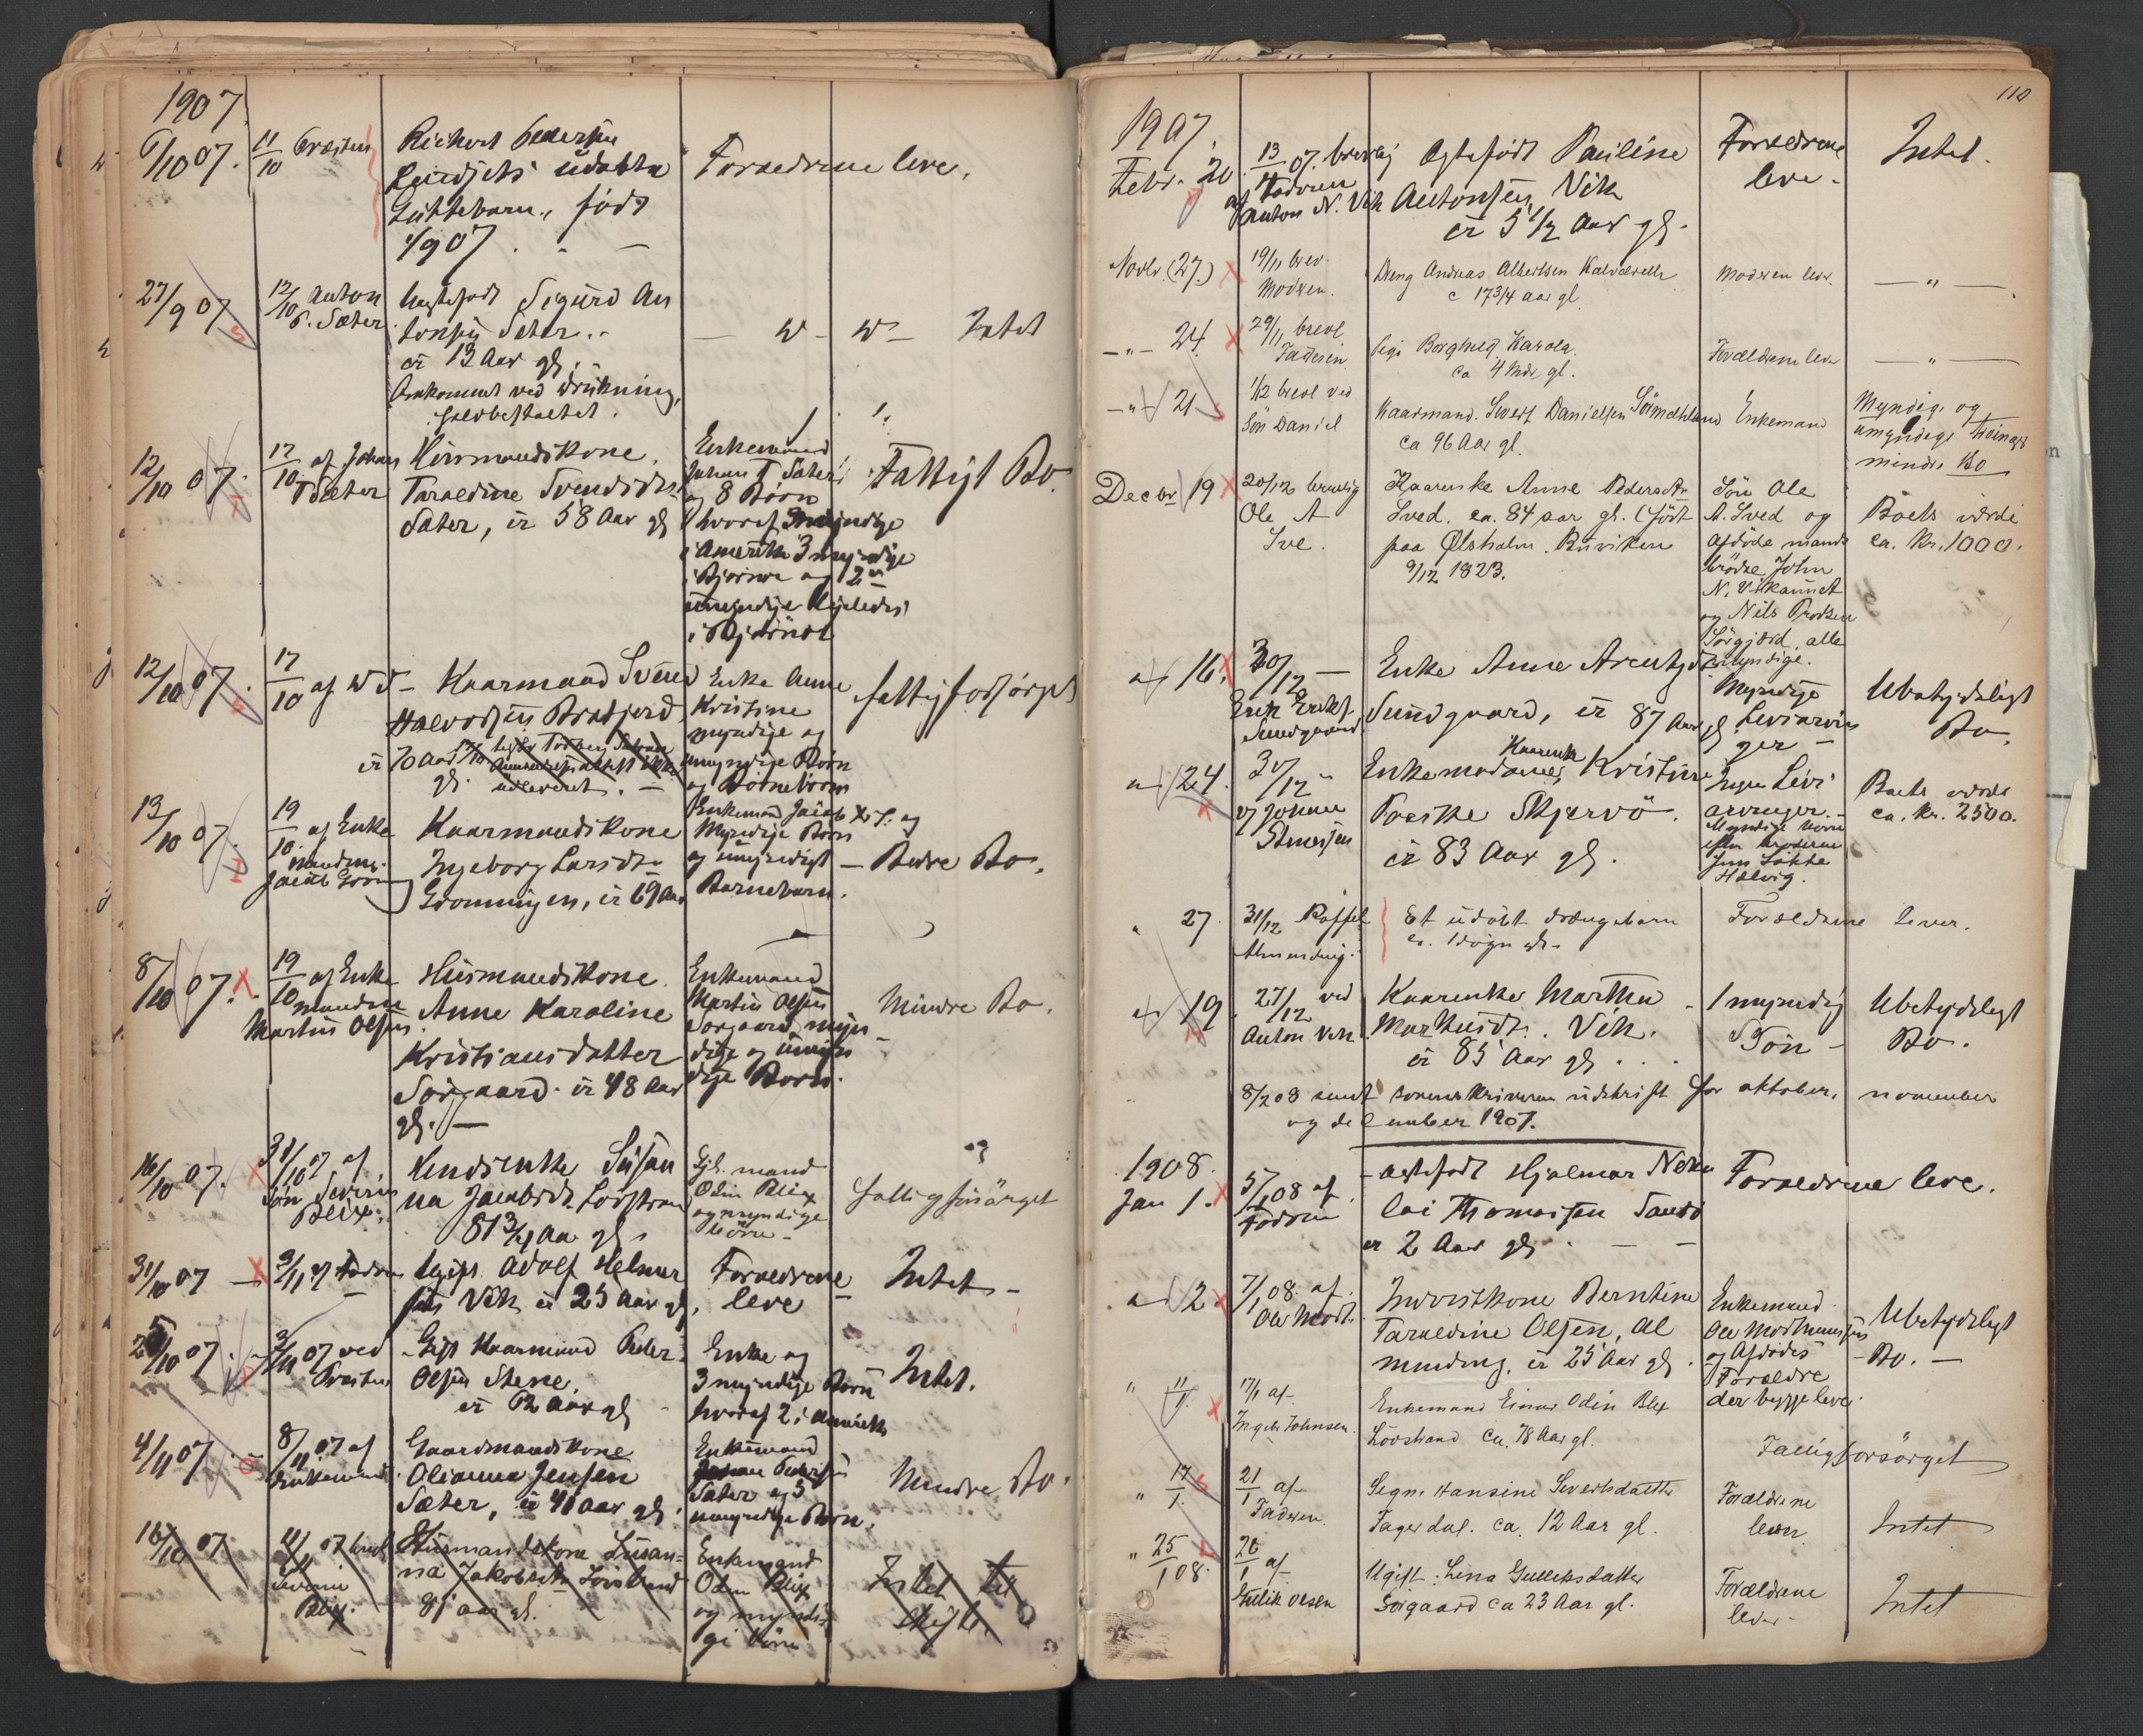 1907.
6/10 07. 11/10 Præsten Rickert Pedersen Forældrene leve.
udøbte
født
1/9 07.
27/9 07 12/10 Anton Uægtefødt Sigurd An
P. Sæter tonsen Sæter. Intet
er 13 Aar gl.
Omkommet ved drukning,
12/10 07. 17/10 af Johan Husmandskone Enkemand Fattigt Bo.
T Sæter Taraldine Svendsdt. Johan T Sæter
Sæter, er 58 Aar gl og 8 Børn
hvoraf myndige
i Amerika 3 myndige
i Bjørnør og 2
umyndige ligeledes
i Bjørnør
12/10 07. 17/10 af Kaarmand Svend Enke Anne fattigforsørget
Kristine
er 70 Aar myndige og
gl. umyndige Børn
og Børnebørn
13/10 07. 19/10 af Enke Kaarmandskone Enkemand Jacob og
manden Ingeborg Larsdt. Myndige Børn
Jacob Grøn Grønningen, er 69 Aar og umyndigt — Bedre Bo.
Barnebarn.
8/10 07. 19/10 af Enke Husmandskone Enkemand
manden Anne Karoline Martin Olsen Mindre Bo.
Martin Olsen Kristiansdatter Sørgaard, myn
Sørgaard. er 48 Aar dige og umyn
gl. — dige Børn.
16/10 07. 31/10 07 af Susan Gjl. mand
Søn Severin na Jacobsdt. Løvstrand Odin Blix fattigforsørget
Blix. 81 3/4 Aar gl. og myndige
Børn
31/10 07 3/11 af Fadren Ugift Adolf Helmer Forældrene Intet —
sen Vik er 25 Aar gl. leve
25/10 07. 3/11 07 ved Gift Kaarmand Peder Enke og Intet.
Præsten Olsen Stene. 3 myndige Børn
er 62 Aar gl hvoraf 2 i Amerika
4/11 07. 8/11 07 af Gaardmandskone Enkemand
Enkemand Olianna Jensen Johan Pedersen Mindre Bo.
Sæter, er 41 Aar gl. Sæter og 5
umyndige Børn.
16/10 07 11/11 07 Husmandskone Susan= Enkemand Intet
Severin na Jakobsdtr. Løvstrand Odin Blix
Blix. 81 aar gl. og myndi
ge Børn
110
1907.
Febr. 20. 13/11 07. brevlig Ægtefødt Pauline Forældrene Intet.
af Fadren Antonsen Vik leve.
Anton N. Vik er 5 1/2 Aar gl.
Novbr. (27.) 19/11 brev. Dreng Andreas Albertsen Moderen lever. — " —
Modren. c 17 3/4 aar gl
— " — 24. 29/11 brevl Pige Borghild Karola. Forældrene leve — " —
Faderen ca 4 Mdr. gl.
— " — 21 1/12 brevl ved Kaarmand. Sivert Danielsen Enkemand Myndige og
Søn Daniel ca 96 Aar gl. umyndige
mindre Bo
Decbr. 19 20/12 brevlig Kaarenke Anne Pedersdtr. Søn Ole
Ole A Sved. ca. 84 aar gl. (født A. Sved og Boets værdi
Sve. paa Ølsholm. Buviken afdøde mands ca. Kr. 1000.
9/12 1823. brødre John
N. Vikaunet
og Nils
alle
myndige.
16. 30/12 — Enke Anne Arentsdt. Myndige Ubetydeligt
Erik Erikf. Sundgaard, er 87 Aar gl Livsarvin Bo.
Sundgaard. ger —
24. 30/12 " Enkemadame Kaarenke Kristine Ingen Livs Boets værdi
af Johan Skjervø. arvinger. ca. Kr. 2500.
er 83 Aar gl. Myndige
efter broderen
Jens Løkke
27. 31/12 Et udøbt drengebarn Forældrene lever.
Almending. ca. 1 døgn gl.
19. 27/12 ved Kaarenke Martha — 1 myndig Ubetydeligt
Anton Vik Vik. Søn — Bo.
er 85 Aar gl.
8/2 08 sendt sorenskriveren udskrift for oktober, november
og december 1907.
1908.
Jan 1. 5/1 08 af Ægtefødt Hjalmar Niko Forældrene leve.
Fadren lai Thomassen
er 2 Aar gl. — —
2. 7/1 08. af Inderstkone Berntine Enkemand Ubetydeligt
Ole Mort. Taraldine Olsen, Al Ole Mortensen
minding. er 25 Aar gl. og Afdødes — Bo. —
Forældre
" 11/1. 17/1 af der begge leve.
Ingebr Johnsen. Enkemand Einar Odin Blix
Løvstrand ca. 78 Aar gl. Fattigforsørget
" 17/1. 21/1 af Hansine Sivertsdatter Forældrene
Faderen. Fagerdal. ca. 12 Aar gl. lever Intet
" 25/1 08. 26/1 af Ugift: Lina Gulleksdatter Forældrene
Gullik Olsen Sørgaard ca 23 Aar gl. lever — Intet